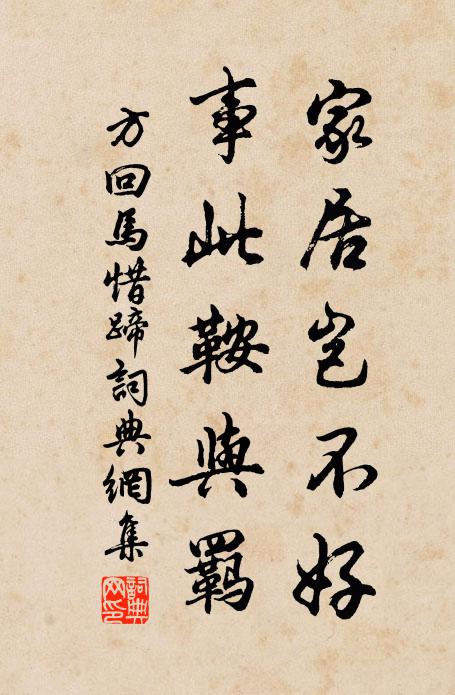 家居岂不好
事此鞍與羈
方回馬惜蹄詞典網集
詞典網印